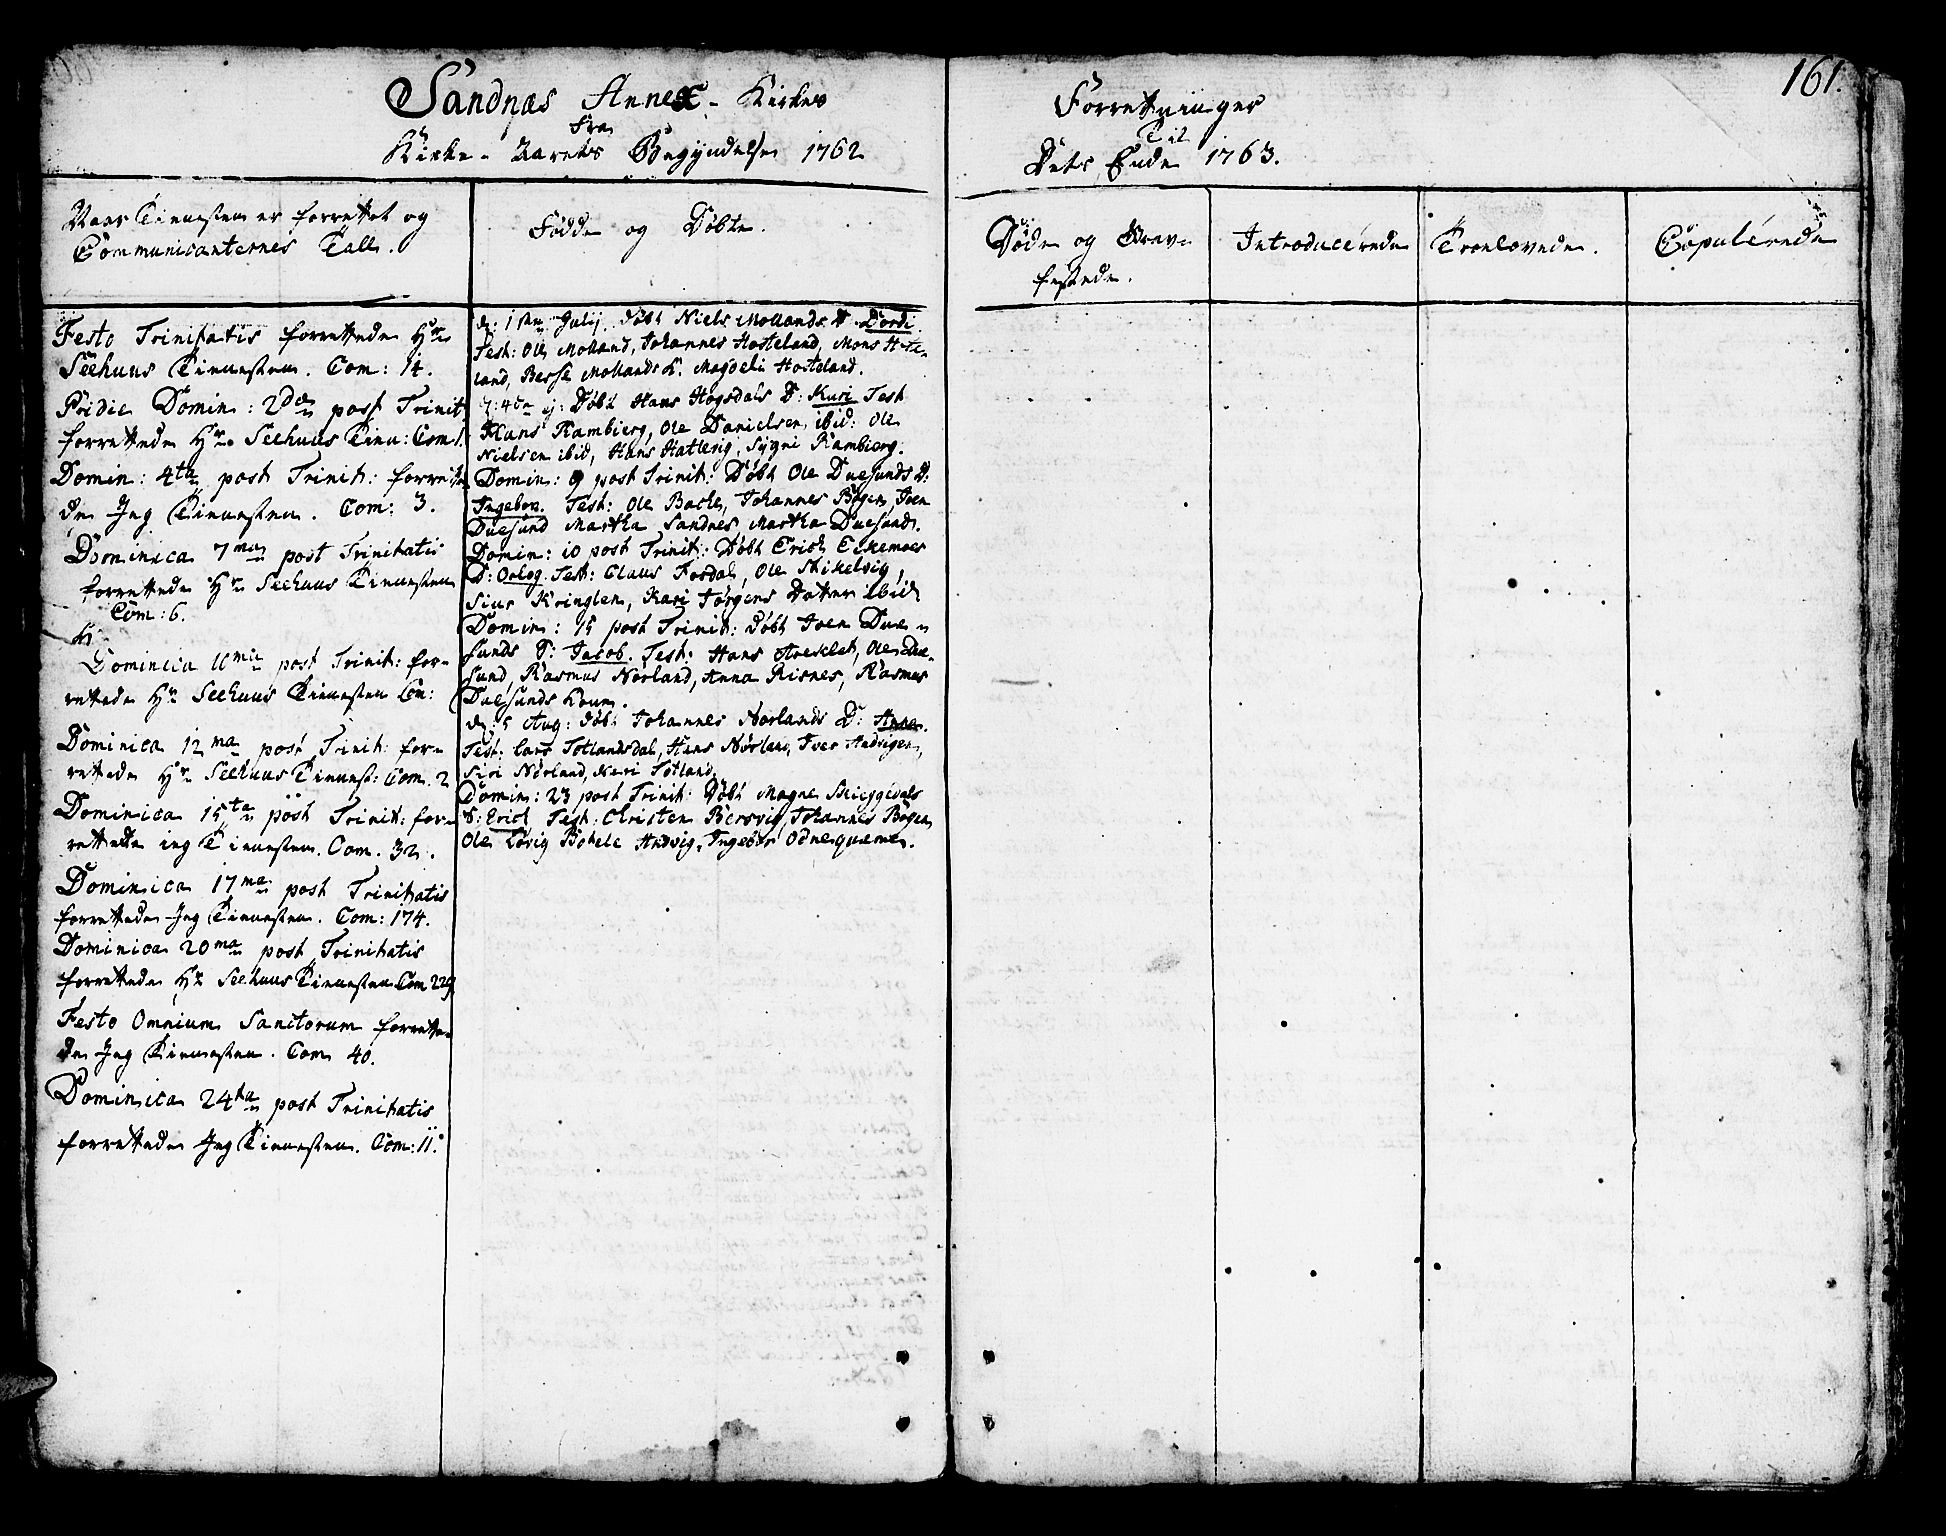 161.
Sandnæs Annex-Kirkes Forretninger
Fra Til
Kirke-Aarets Begyndelse 1762 Dets Ende 1763.
Naar Tienesten er forrettet og
Communicanternes Tall.
Fødde og Døbte.
Døde og Grav-
festede.
Introducérede
Troelovede.
Copulérede
Festo Trinitatis forrettede Hr
Seehuus Tienesten. Com: 14.
Pridie Domin: 2den post Trinit
forrettede Hr. Seehuus Tien: Com 1.
Domin: 4ta post Trinit: forrette-
de Jeg Tienesten. Com: 3.
Dominica 7ma post Trinitatis
forrettede Hr Seehuus Tienesten
Com: 6.
Dominica 10ma post Trinit: for-
rettede Hr Seehuus Tienesten Com:
Dominica 12ma post Trinit: for-
rettede Hr Seehuus Tienest: Com. 2
Dominica 15ta post Trinit: for-
rettede jeg Tienesten. Com. 32.
Dominica 17ma post Trinitatis
forrettede Jeg Tienesten. Com: 174.
Dominica 20ma post Trinitatis
forrettede Hr Seehuus Tienesten Com 229
Festo Omnium Sanctorum forrette-
de Jeg Tienesten. Com 40.
Dominica 24ta post Trinitatis
forrettede Jeg Tienesten. Com: 11.
d: 1ste Julij. døbt Niels Mollands D. Dordi
Test: Ole Molland, Johannes Hosteland, Mons Hoste-
land, Berse Mollands K. Magdeli Hosteland.
d: 4de ej: Døbt Hans Høgsdals D: Kari Test
Hans Rambierg, Ole Danielsen ibid: Ole
Nielsen ibid, Hans Hatlevig, Sygni Rambierg.
Domin: 9 post Trinit: Døbt Ole Duesunds D:
Ingebor. Test: Ole Backe, Johannes Bøgen, Iven
Duesund Martha Sandnes Martha Duesund.
Domin: 10 post Trinit: Døbt Erich Eikemoes
D: Oelog. Test: Claus Fosdal, Ole Stikelvig,
Siur Kringlen, Kari Jørgens Datter ibid
Domin: 15 post Trinit: Døbt Iven Due-
sunds S: Jacob. Test: Hans Areklet, Ole Due-
sund, Rasmus Nørland, Anna Risnes, Rasmus
Duesunds Koune.
d: 5 Aug: døbt Johannes Nørlands D: Anna.
Test: Lars Totlandsdal, Hans Nørland, Iver Andvigen,
Siri Nørland, Mari Totland.
Domin: 23 post Trinit: Døbt Magne Skieggedals
S: Erich Test: Christen Bersvig, Johannes Bøgen,
Ole Løvig Bohele Andvig, Ingebor Odnequeme.